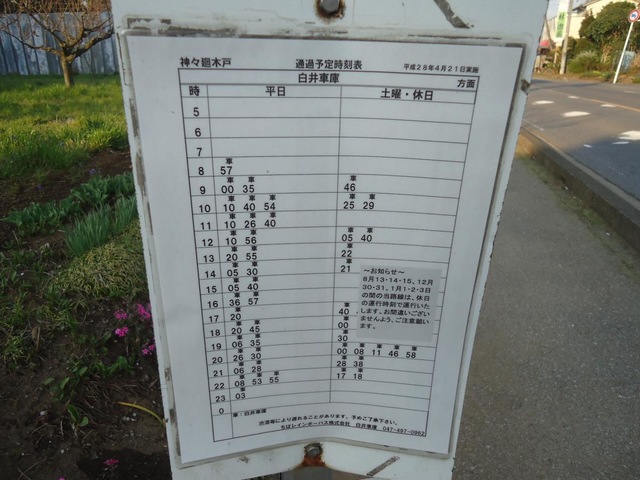 神々廻木戸 通過予定時刻表 平成28年4月21日実施
白井車庫 方面
時 平日 土曜・休日
5
6
7
車
8 57
車 車 車
9 00 35 46
車 車 車 車 車
10 10 40 54 25 29
車 車 車
11 10 26 40
車 車 車 車
12 10 56 05 40
車 車 車
13 20 55 22
車 車 車
14 05 30 21
車 車
15 05 40
車 車
16 36 57
車 車
17 20 40
車 車 車
18 20 45 00
車 車 車
19 06 35 30
車 車 車 車 車 車 車
20 26 30 00 08 11 46 58
車 車 車 車
21 06 28 28 38
車 車 車 車 車
22 08 53 55 17 18
車
23 03
0
～お知らせ～
8月13・14・15、12月
30・31、1月1・2・3日
の間の当路線は、休日
の運行時刻で運行いた
します。お間違いござい
ませんよう、ご注意願い
ます。
車：白井車庫
渋滞等により遅れることがあります。予めご了承下さい。
ちばレインボーバス株式会社 白井車庫 047-497-0962